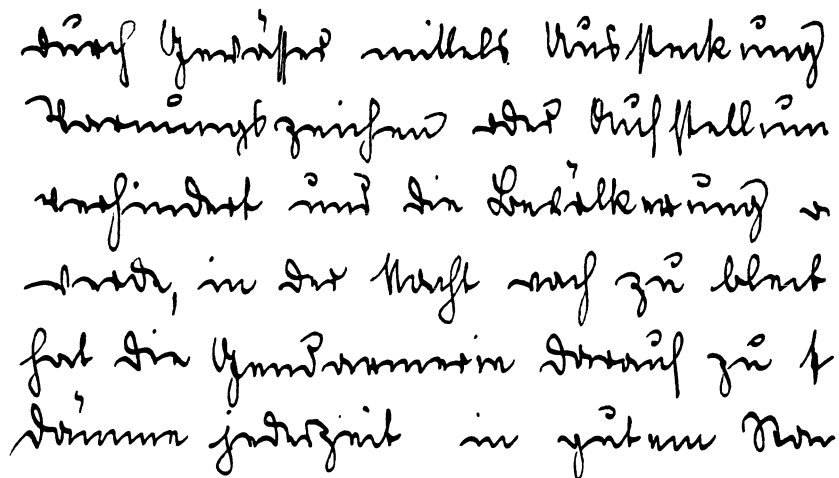 durch Gewässer mittels Aussteckung
Warnungszeichen oder Aufstellun
verhindert und die Bevölkerung
werde, in der Nacht wach zu bleib
hat die Gendarmerie darauf zu
Dämme jederzeit in gutem Stan